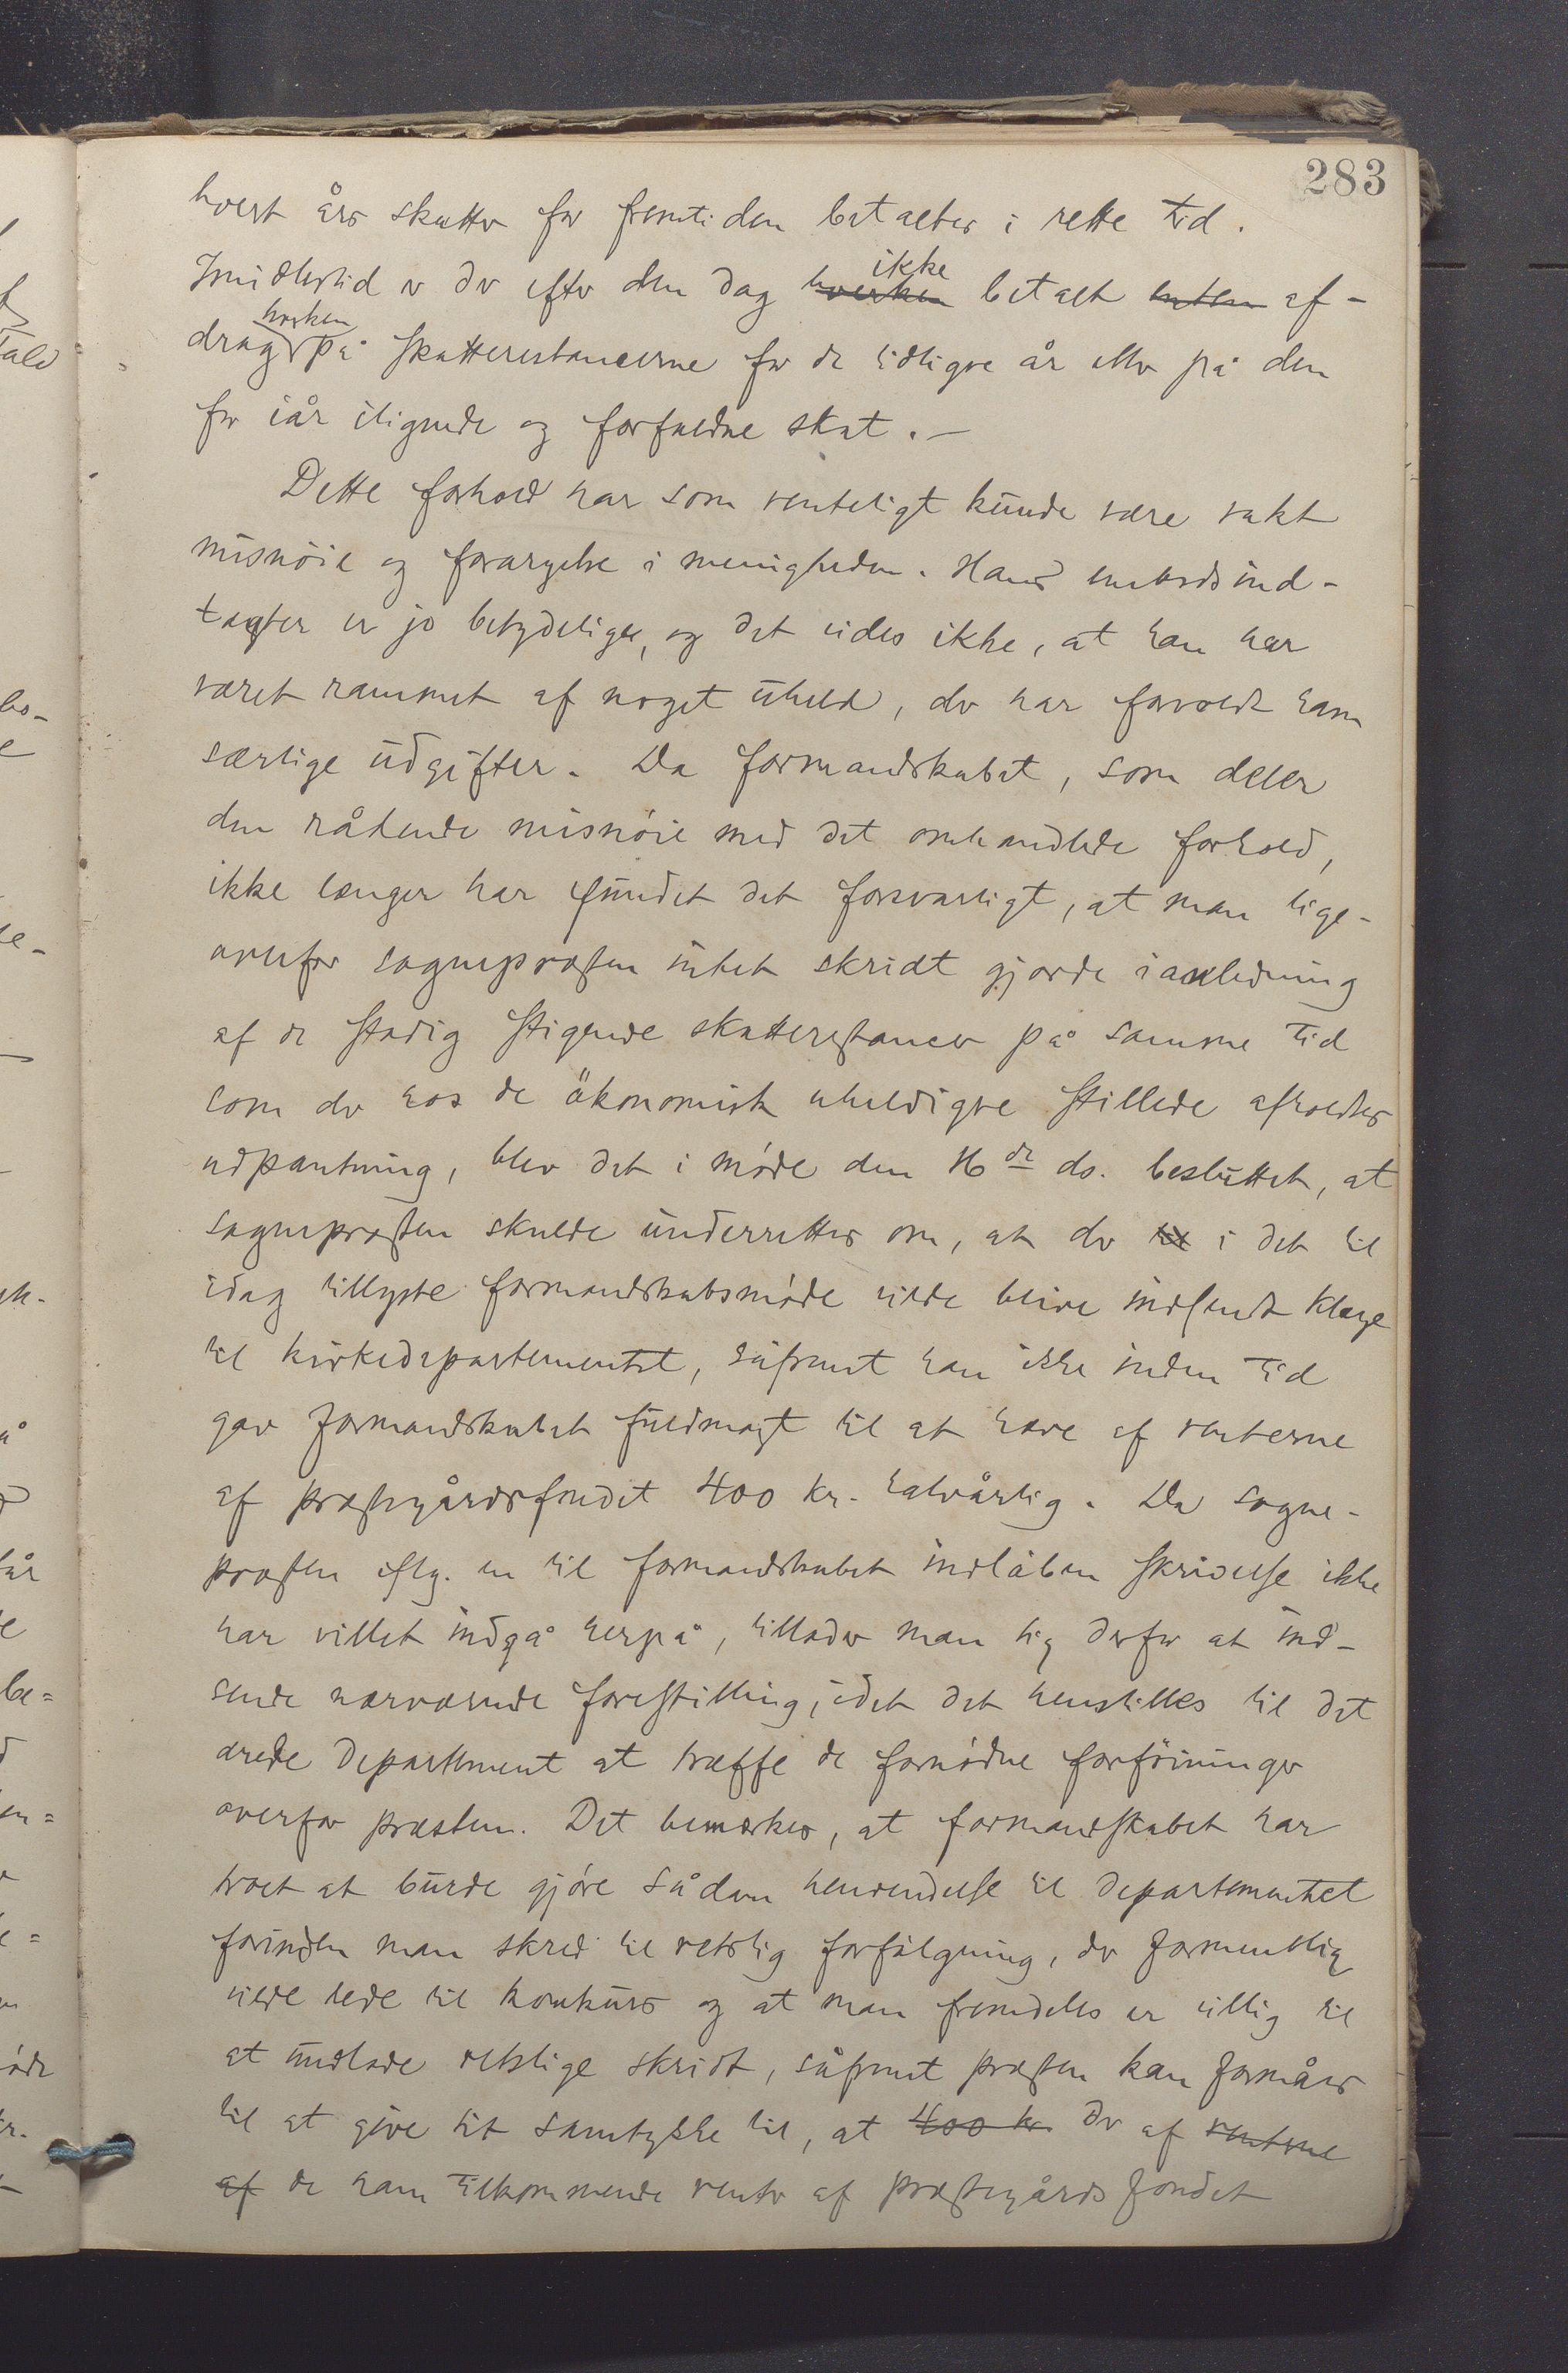 283
hvert års skatter for fremtiden betaltes i rette tid.
Imidlertid er der efter den dag hverken ikke betalt enten af-
drag hverken på skatterestancerne for de tidligere år eller på den
for iår ilignede og forfaldne skat. –
Dette forhold har som venteligt kunde være vakt
misnöie og forargelse i menigheden. Hans embedsind-
tægter er jo betydelige, og det vides ikke, at han har
været rammet af noget uheld, der har forvoldt ham
særlige udgifter. Da formandskabet, som deler
den rådende misnöie med det omhandlede forhold,
ikke længer har fundet det forsvarligt, at man lige-
overfor sognepræsten intet skridt gjorde i anledning
af de stadig stigende skatterestancer på samme tid
som der hos de ökonomisk uheldigere stillede afholdtes
udpantning, blev det i möde den 16de ds. besluttet, at
sognepræsten skulde underrettes om, at der til i det til
idag tillyste formandskabsmöde vilde blive indsendt klage
til kirkedepartementet, såfremt han ikke inden tid
gav formandskabet fuldmagt til at hæve af renterne
af præstegårdsfondet 400 kr. halvårlig. Da sogne-
præsten iflg. en til formandskabet indlöben skrivelse ikke
har villet indgå herpå, tillader man sig derfor at ind-
sende nærværende forestilling, idet det henstilles til det
ærede departement at træffe de fornödne forföininger
overfor præsten. Det bemærkes, at formandskabet har
troet at burde gjöre sådan henvendelse til departementet
forinden man skred til retslig forfölgning, der formentlig
vilde lede til konkurs og at man fremdeles er villig til
at undlade retslige skridt, såfremt præsten kan formåes
til at give sit samtykke til, at 400 kr. der af renterne
af de ham tilkommende renter af præstegårdsfondet